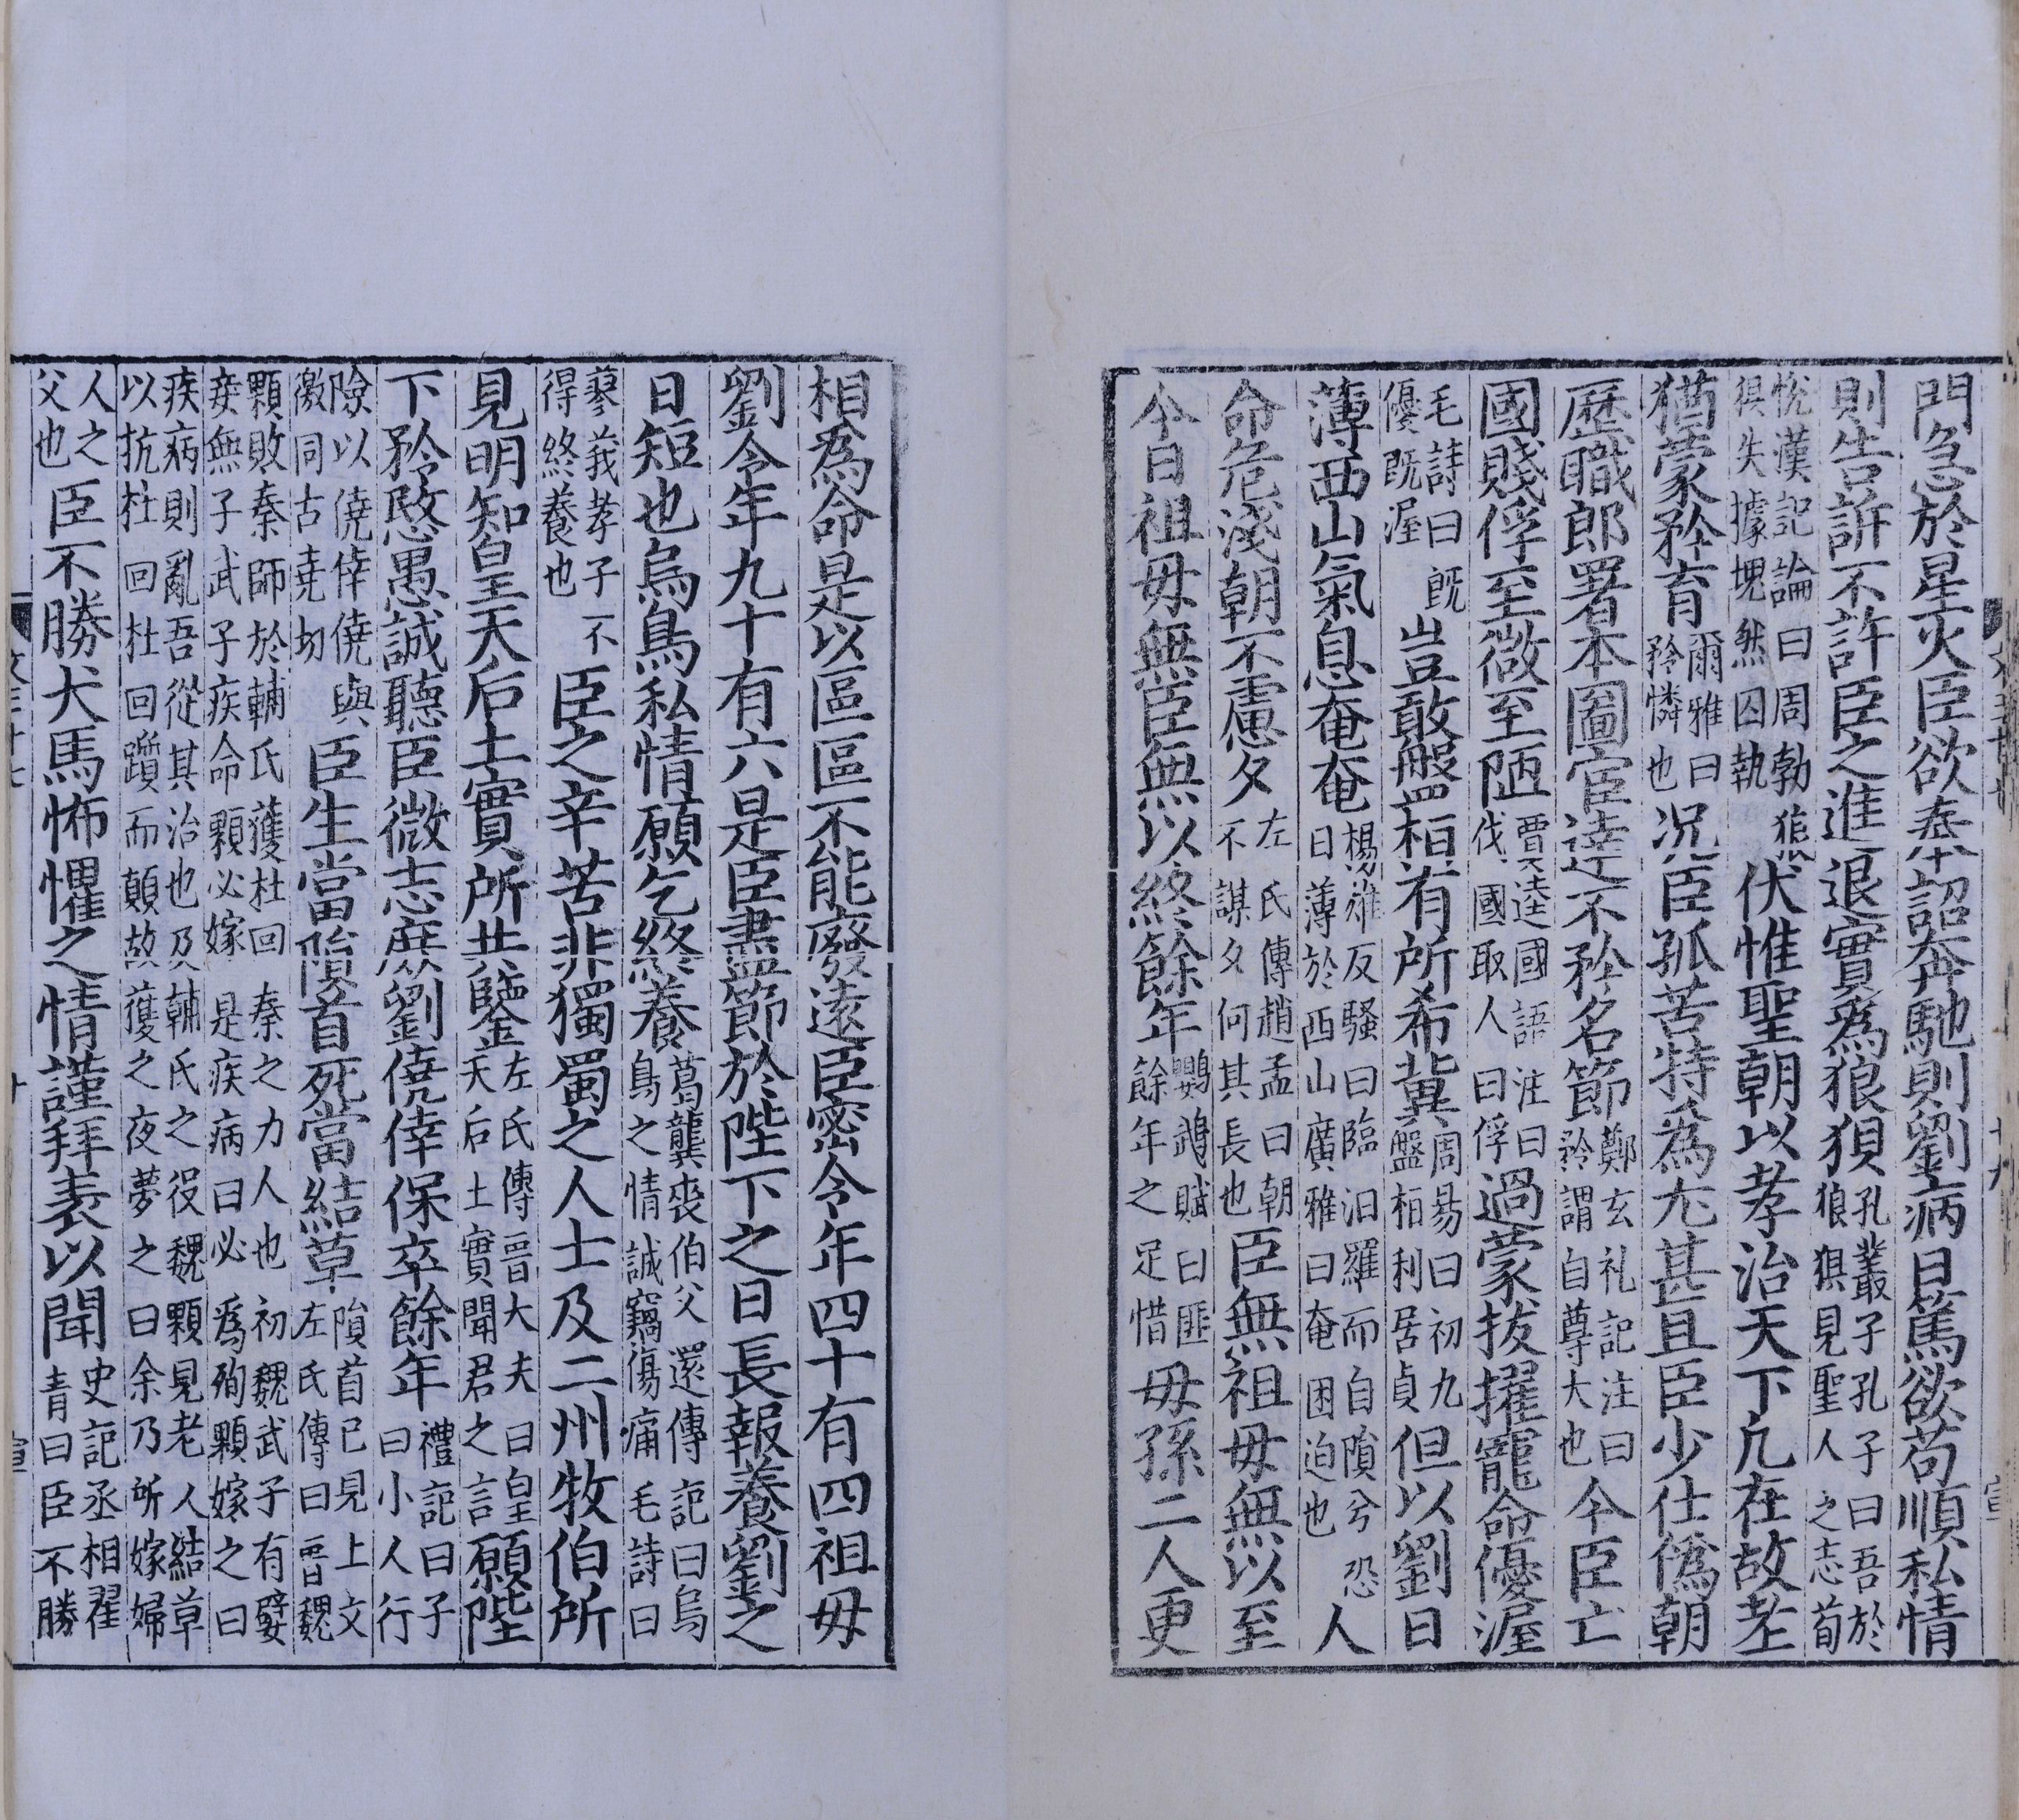 門急於星火臣欲奉詔奔馳則劉病日篤欲苟順私情
則告訴不許臣之進退實爲狼狽孔叢子孔子曰吾於狼狽見聖人之志荀
悅漢記論曰周勃狼狽失據塊然囚執伏惟聖朝以孝治天下凡在故老
猶蒙矜育爾雅曰矜憐也况臣孤苦特爲尤甚且臣少仕僞朝
歷職郎署本圖宦達不矜名節鄭玄礼記注曰矜謂自尊大也今臣亡
國賤俘至微至陋賈逵國語注曰伐國取人曰俘過蒙拔擢寵命優渥
毛詩曰旣優旣渥豈敢盤桓有所希冀周易曰初九盤桓利居貞但以劉日
薄西山氣息奄奄楊雄反騷曰臨汨羅而自隕兮恐日薄於西山廣雅曰奄困迫也人
命危淺朝不慮夕左氏傳趙孟曰朝不謀夕何其長也臣無祖毋無以至
今日祖毋無臣無以終餘年鸚鵡賦曰匪餘年之足惜毋孫二人更
相爲命是以區區不能廢遠臣密今年四十有四祖毋
劉今年九十有六是臣盡節於陛下之日長報養劉之
日短也烏鳥私情願乞終養葛龔喪伯父還傳記曰烏鳥之情誠竊傷痛毛詩曰
蓼莪孝子不得終養也臣之辛苦非獨蜀之人士及二州牧伯所
見明知皇天后土實所共鑒左氏傳晉大夫曰皇天后土實聞君之言願陛
下矜愍愚誠聽臣微志庶劉僥倖保卒餘年禮記曰子曰小人行
險以僥倖僥與徼同古堯切臣生當隕首死當結草隕首已見上文左氏傳曰晉魏
顆敗秦師於輔氏獲杜回秦之力人也初魏武子有嬖妾無子武子疾命顆必嫁是疾病曰必爲殉顆嫁之曰
疾病則亂吾從其治也及輔氏之役魏顆見老人結草以抗杜回杜回躓而顛故獲之夜夢之曰余乃所嫁婦
人之父也臣不勝犬馬怖懼之情謹拜表以聞史記丞相翟青曰臣不勝